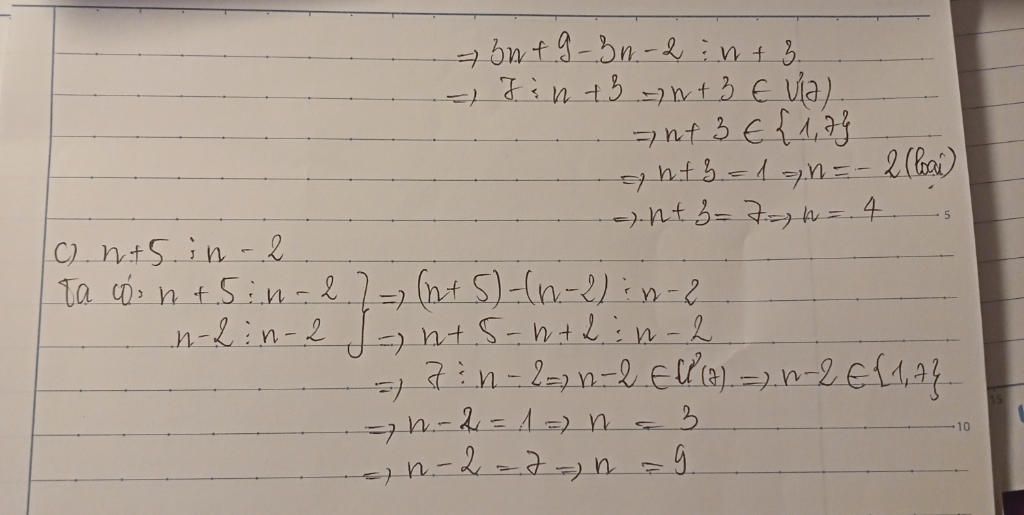 => 3n + 9 - 3n - 2 ⋮ n + 3
=> 7 ⋮ n + 3 => n + 3 ∈ Ư(7)
=> n + 3 ∈ {1,7}
=> n + 3 = 1 => n = - 2 (loại)
=> n + 3 = 7 => n = 4
5
c) n + 5 ⋮ n - 2
Ta có: n + 5 ⋮ n - 2 } => (n + 5) - (n - 2) ⋮ n - 2
n - 2 ⋮ n - 2 } => n + 5 - n + 2 ⋮ n - 2
=> 7 ⋮ n - 2 => n - 2 ∈ Ư(7) => n - 2 ∈ {1,7}
=> n - 2 = 1 => n = 3
10
=> n - 2 = 7 => n = 9
15